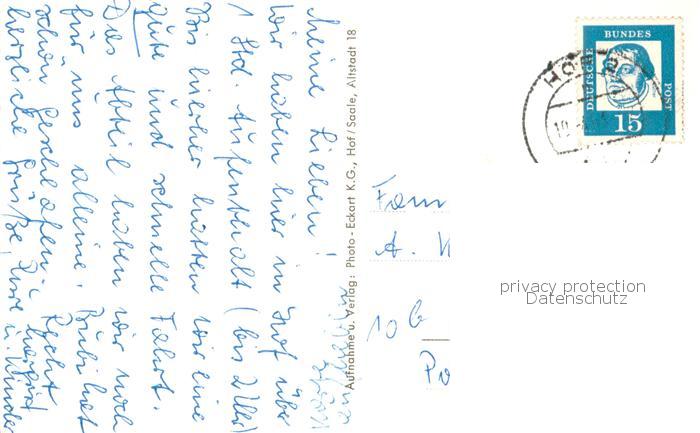 Meine Lieben!
Wir haben hier in Hof über
1 Std. Aufenthalt (bis 2 Uhr)
Bis hierher hatten wir eine
gute und schnelle Fahrt.
Das Abteil haben wir noch
für uns alleine. Bubi hat
schön geschlafen. Recht
herzliche Grüße, Eure
u. Kinder
Aufnahme u. Verlag: Photo-Eckart K.G., Hof/Saale, Altstadt 18
DEUTSCHE BUNDES POST
15
HOF
Fam
A.
10 b
privacy protection
Datenschutz